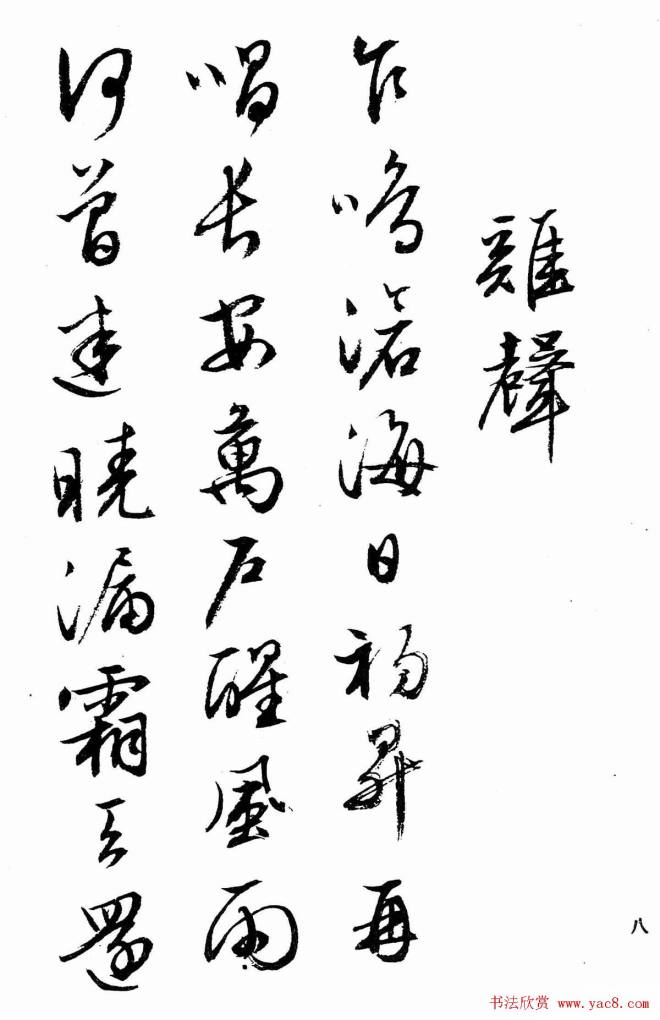 雞聲
乍鳴滄海日初昇再
唱長安萬戶醒風雨
何曾迷曉漏霜天還
八
书法欣赏 www.yac8.com